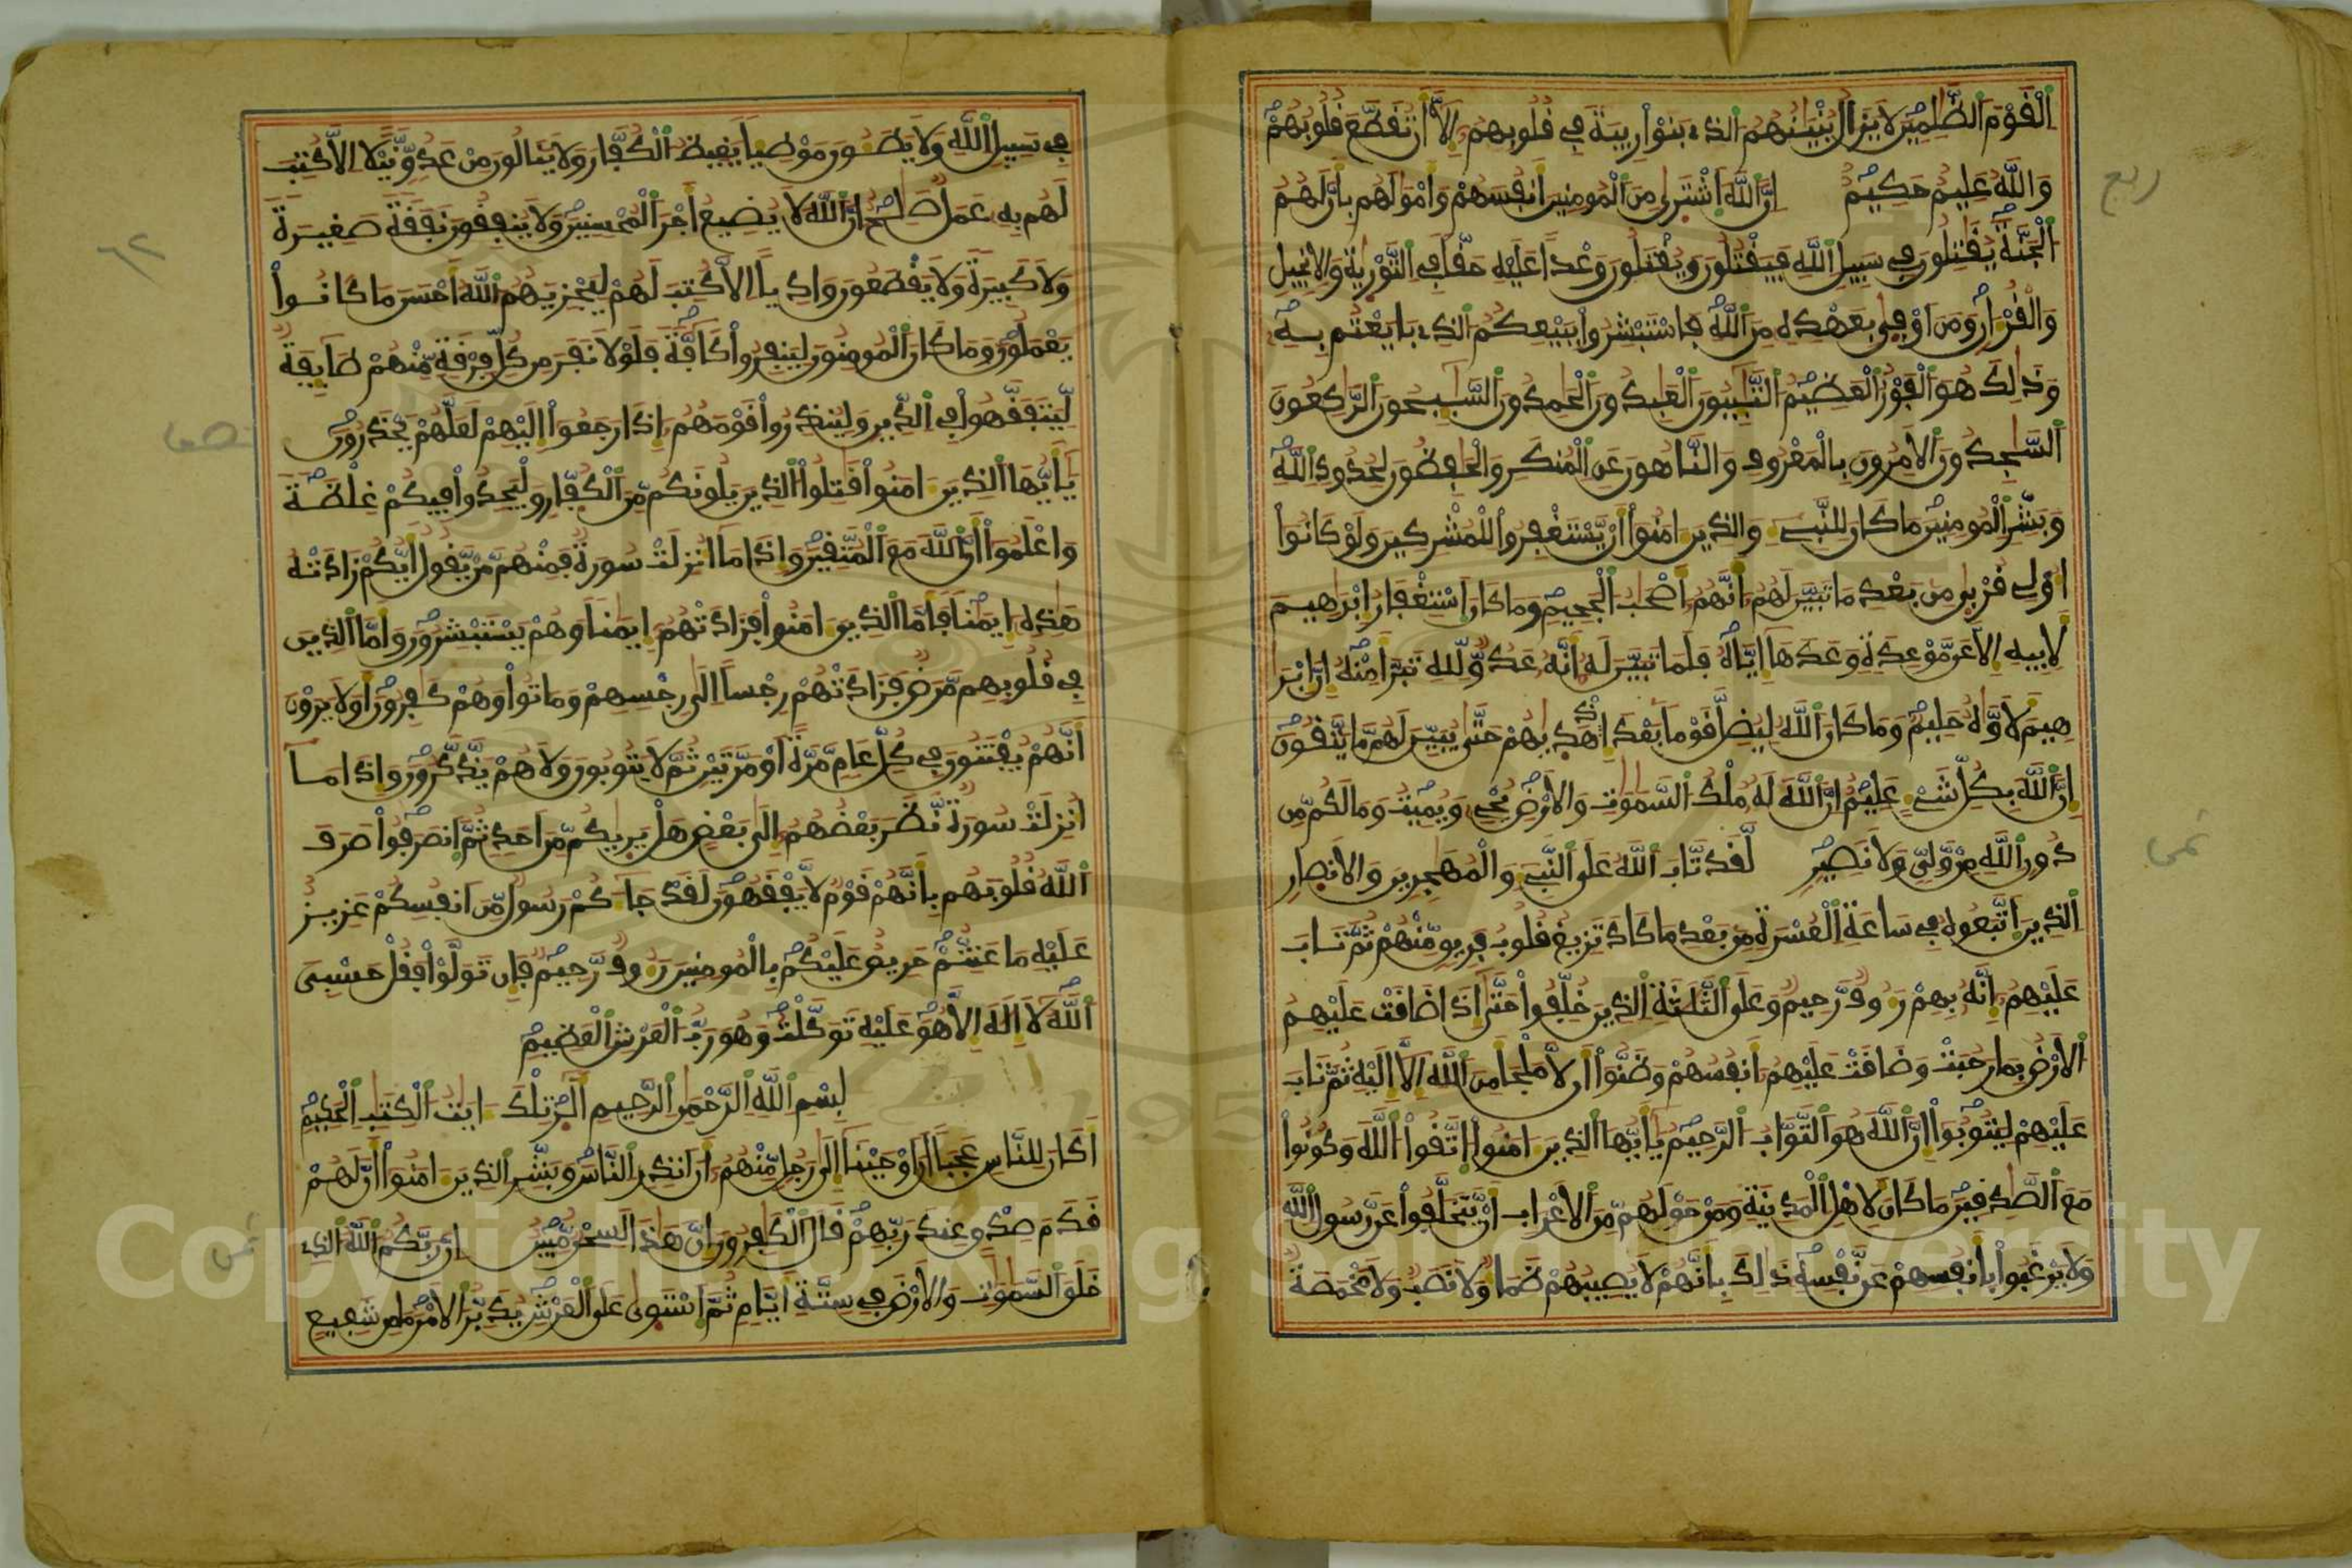 الْقَوْمَ الظَّلِمِينَ لَا يَزَالُ بُنْيَنُهُمُ الذِي بَنَوْا رِيبَةً فِي قُلُوبِهِمُ إِلَّا أَن تُقَطَّعَ قُلُوبُهُمْ
وَاللَّهُ عَلِيمٌ حَكِيمٌ إِنَّ اللَّهَ اشْتَرَى مِنَ الْمُومِنِينَ أَنفُسَهُمْ وَأَمْوَلَهُم بِأَنَّ لَهُمُ
الْجَنَّةَ يُقَتِلُونَ فِي سَبِيلِ اللَّهِ فَيَقْتُلُونَ وَيُقْتَلُونَ وَعْداً عَلَيْهِ حَقّاً فِي التَّوْرَيةِ وَالِانجِيلِ
وَالْقُرْءَانِ وَمَنَ اَوْفَى بِعَهْدِهِ مِنَ اللَّهِ فَاسْتَبْشِرُوا بِبَيْعِكُمُ الذِي بَايَعْتُم بِهِ
وَذَلِكَ هُوَ الْفَوْزُ الْعَظِيمُ التَّيِبُونَ الْعَبِدُونَ الْحَمِدُونَ السَّيِحُونَ الرَّكِعُونَ
السَّجِدُونَ الَامِرُونَ بِالْمَعْرُوفِ وَالنَّاهُونَ عَنِ الْمُنكَرِ وَالْحَفِظُونَ لِحُدُودِ اللَّهِ
وَبَشِّرِ الْمُومِنِينَ مَا كَانَ لِلنَّبِيءِ وَالذِينَ ءَامَنُوا أَنْ يَّسْتَغْفِرُوا لِلْمُشْرِكِينَ وَلَوْ كَانُوا
أُوْلِي قُرْبَى مِن بَعْدِ مَا تَبَيَّنَ لَهُمُ أَنَّهُمُ أَصْحَبُ الْجَحِيمِ وَمَا كَانَ اَسْتِغْفَارُ إِبْرَهِيمَ
لِأَبِيهِ إِلَّا عَن مَّوْعِدَةٍ وَعَدَهَا إِيَّاهُ فَلَمَّا تَبَيَّنَ لَهُ أَنَّهُ عَدُوٌّ لِّلهِ تَبَرَّأَ مِنْهُ إِنَّ إِبْرَ
هِيمَ لَأَوَّاهٌ حَلِيمٌ وَمَا كَانَ اللَّهُ لِيُضِلَّ قَوْماً بَعْدَ إِذْ هَدَيهُمْ حَتَّى يُبَيِّنَ لَهُم مَّا يَتَّقُونَ
إِنَّ اللَّهَ بِكُلِّ شَيْءٍ عَلِيمٌ إِنَّ اللَّهَ لَهُ مُلْكُ السَّمَوَتِ وَالَارْضِ يُحْيِ وَيُمِيتُ وَمَا لَكُم مِّن
دُونِ اللَّهِ مِنْ وَّلِيٍّ وَلَا نَصِيرٍ لَّقَد تَّابَ اللَّهُ عَلَى النَّبِيءِ وَالْمُهَجِرِينَ وَالَانصَارِ
الذِينَ اتَّبَعُوهُ فِي سَاعَةِ الْعُسْرَةِ مِن بَعْدِ مَا كَادَ تَزِيغُ قُلُوبُ فَرِيقٍ مِّنْهُمْ ثُمَّ تَابَ
عَلَيْهِمُ إِنَّهُ بِهِمْ رَءُوفٌ رَّحِيمٌ وَعَلَى الثَّلَثَةِ الذِينَ خُلِّفُوا حَتَّى إِذَا ضَاقَتْ عَلَيْهِمُ
الَارْضُ بِمَا رَحُبَتْ وَضَاقَتْ عَلَيْهِمُ أَنفُسُهُمْ وَظَنُّوا أَن لَّا مَلْجَأَ مِنَ اللَّهِ إِلَّا إِلَيْهِ ثُمَّ تَابَ
عَلَيْهِمْ لِيَتُوبُوا إِنَّ اللَّهَ هُوَ التَّوَّابُ الرَّحِيمُ يَأَيُّهَا الذِينَ ءَامَنُوا اتَّقُوا اللَّهَ وَكُونُوا
مَعَ الصَّدِقِينَ مَا كَانَ لِأَهْلِ الْمَدِينَةِ وَمَنْ حَوْلَهُم مِّنَ الَاعْرَابِ أَنْ يَّتَخَلَّفُوا عَن رَّسُولِ اللَّهِ
وَلَا يَرْغَبُوا بِأَنفُسِهِمْ عَن نَّفْسِهِ ذَلِكَ بِأَنَّهُمْ لَا يُصِيبُهُمْ ظَمَأٌ وَلَا نَصَبٌ وَلَا مَخْمَصَةٌ
ربع
ثمن
فِي سَبِيلِ اللَّهِ وَلَا يَطَئُونَ مَوْطِئاً يَغِيظُ الْكُفَّارَ وَلَا يَنَالُونَ مِنْ عَدُوٍّ نَّيْلاً إِلَّا كُتِبَ
لَهُم بِهِ عَمَلٌ صَلِحٌ إِنَّ اللَّهَ لَا يُضِيعُ أَجْرَ الْمُحْسِنِينَ وَلَا يُنفِقُونَ نَفَقَةً صَغِيرَةً
وَلَا كَبِيرَةً وَلَا يَقْطَعُونَ وَادِياً إِلَّا كُتِبَ لَهُمْ لِيَجْزِيَهُمُ اللَّهُ أَحْسَنَ مَا كَانُوا
يَعْمَلُونَ وَمَا كَانَ الْمُومِنُونَ لِيَنفِرُوا كَافَّةً فَلَوْلَا نَفَرَ مِن كُلِّ فِرْقَةٍ مِّنْهُمْ طَايِفَةٌ
لِّيَتَفَقَّهُوا فِي الدِّينِ وَلِيُنذِرُوا قَوْمَهُمُ إِذَا رَجَعُوا إِلَيْهِمْ لَعَلَّهُمْ يَحْذَرُونَ
يَأَيُّهَا الذِينَ ءَامَنُوا قَتِلُوا الذِينَ يَلُونَكُم مِّنَ الْكُفَّارِ وَلْيَجِدُوا فِيكُمْ غِلْظَةً
وَاعْلَمُوا أَنَّ اللَّهَ مَعَ الْمُتَّقِينَ وَإِذَا مَا أُنزِلَتْ سُورَةٌ فَمِنْهُم مَّنْ يَّقُولُ أَيُّكُمْ زَادَتْهُ
هَذِهِ إِيمَناً فَأَمَّا الذِينَ ءَامَنُوا فَزَادَتْهُمُ إِيمَناً وَهُمْ يَسْتَبْشِرُونَ وَأَمَّا الذِينَ
فِي قُلُوبِهِم مَّرَضٌ فَزَادَتْهُمْ رِجْساً إِلَى رِجْسِهِمْ وَمَاتُوا وَهُمْ كَفِرُونَ أَوَلَا يَرَوْنَ
أَنَّهُمْ يُفْتَنُونَ فِي كُلِّ عَامٍ مَّرَّةً أَوْ مَرَّتَيْنِ ثُمَّ لَا يَتُوبُونَ وَلَا هُمْ يَذَّكَّرُونَ وَإِذَا مَا
أُنزِلَتْ سُورَةٌ نَّظَرَ بَعْضُهُمُ إِلَى بَعْضٍ هَلْ يَرَيكُم مِّنَ احَدٍ ثُمَّ انصَرَفُوا صَرَفَ
اللَّهُ قُلُوبَهُم بِأَنَّهُمْ قَوْمٌ لَّا يَفْقَهُونَ لَقَدْ جَاءَكُمْ رَسُولٌ مِّنَ انفُسِكُمْ عَزِيزٌ
عَلَيْهِ مَا عَنِتُّمْ حَرِيصٌ عَلَيْكُم بِالْمُومِنِينَ رَءُوفٌ رَّحِيمٌ فَإِن تَوَلَّوْا فَقُلْ حَسْبِيَ
اللَّهُ لَا إِلَهَ إِلَّا هُوَ عَلَيْهِ تَوَكَّلْتُ وَهُوَ رَبُّ الْعَرْشِ الْعَظِيمِ
بِسْمِ اللَّهِ الرَّحْمَنِ الرَّحِيمِ الَر تِلْكَ ءَايَتُ الْكِتَبِ الْحَكِيمِ
أَكَانَ لِلنَّاسِ عَجَباً أَنَ اَوْحَيْنَا إِلَى رَجُلٍ مِّنْهُمُ أَنَ اَنذِرِ النَّاسَ وَبَشِّرِ الذِينَ ءَامَنُوا أَنَّ لَهُمْ
قَدَمَ صِدْقٍ عِندَ رَبِّهِمْ قَالَ الْكَفِرُونَ إِنَّ هَذَا لَسِحْرٌ مُّبِينٌ إِنَّ رَبَّكُمُ اللَّهُ الذِي
خَلَقَ السَّمَوَتِ وَالَارْضَ فِي سِتَّةِ أَيَّامٍ ثُمَّ اسْتَوَى عَلَى الْعَرْشِ يُدَبِّرُ الَامْرَ مَا مِن شَفِيعٍ
٦٢
نصف
ثمن
Copyright © King Saud University
195